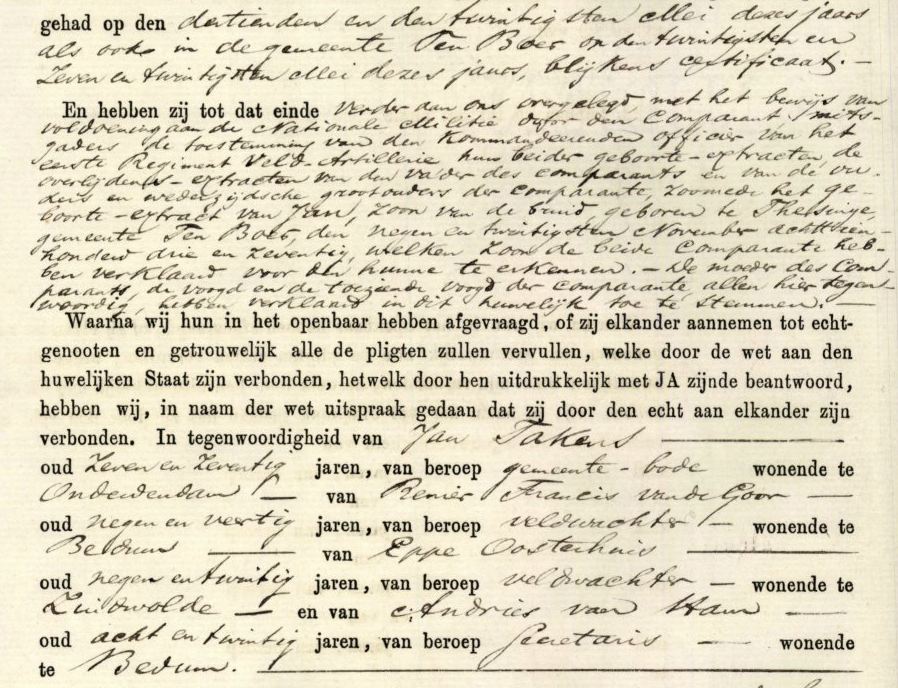 gehad op den dertienden en den twintigsten Mei dezes jaars
als ook in de gemeente Ten Boer op den twintigsten en
zeven en twintigsten Mei dezes jaars, blijkens certificaat. —
En hebben zij tot dat einde verder aan ons overgelegd, met het bewijs van
voldoening aan de Nationale Militie door den Comparant, mits-
gaders de toestemming van den Kommandeerenden officier van het
eerste Regiment Veld-Artillerie hun beider geboorte-extracten, de
overlijdens-extracten van den vader des comparants en van de ou-
ders en wederzijdsche grootouders der comparante, zoomede het ge-
boorte-extract van Jan, zoon van de bruid, geboren te Thesinge,
gemeente Ten Boer, den negen en twintigsten November achttien-
honderd drie en zeventig, welken zoon de beide Comparanten heb-
ben verklaard voor den hunne te erkennen. — De moeder des Com-
parants, de voogd en de toeziende voogd der comparante, allen hier tegen-
woordig, hebben verklaard in dit huwelijk toe te stemmen. —
Waarna wij hun in het openbaar hebben afgevraagd, of zij elkander aannemen tot echt-
genooten en getrouwelijk alle de pligten zullen vervullen, welke door de wet aan den
huwelijken Staat zijn verbonden, hetwelk door hen uitdrukkelijk met JA zijnde beantwoord,
hebben wij, in naam der wet uitspraak gedaan dat zij door den echt aan elkander zijn
verbonden. In tegenwoordigheid van Jan Takens —
oud zeven en zeventig jaren, van beroep gemeente-bode wonende te
Onderdendam — van Renier Francis van de Goor —
oud negen en veertig jaren, van beroep veldwachter — wonende te
Bedum — van Eppe Oosterhuis —
oud negen en twintig jaren, van beroep veldwachter — wonende te
Zuidwolde — en van Andries van Ham —
oud acht en twintig jaren, van beroep Secretaris — wonende
te Bedum. —